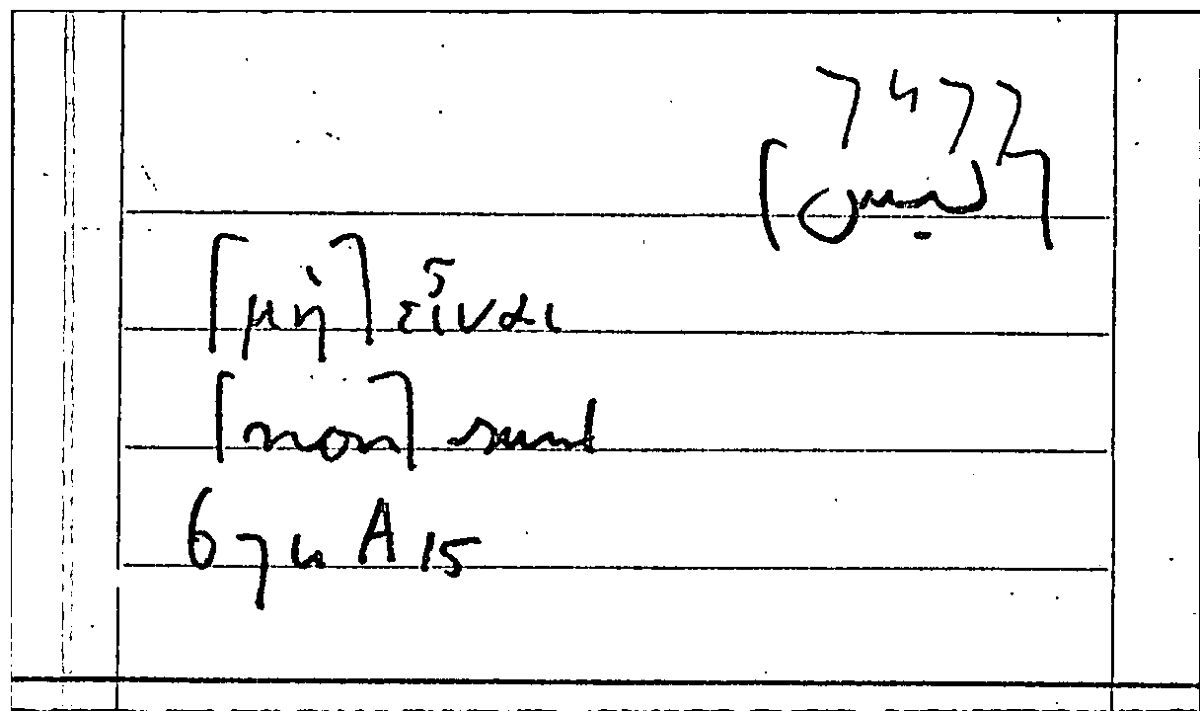 7477
[ليس]
[μὴ] εἶναι
[non] sunt
674 A 15